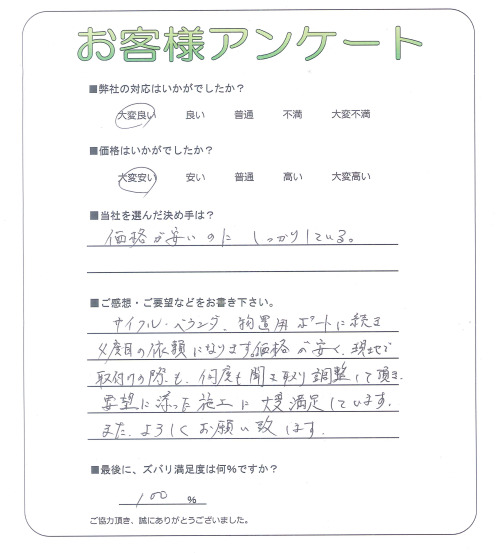 お客様アンケート
■弊社の対応はいかがでしたか？
大変良い 良い 普通 不満 大変不満
■価格はいかがでしたか？
大変安い 安い 普通 高い 大変高い
■当社を選んだ決め手は？
価格が安いのに しっかりしている。
■ご感想・ご要望などをお書き下さい。
サイクル・ベランダ、物置用ポートに続き
4度目の依頼になります。価格が安く、現地で
取付けの際も、何度も聞き取り調整して頂き、
要望に添った施工に大変満足しています。
また、よろしくお願い致します。
■最後に、ズバリ満足度は何%ですか？
100 %
ご協力頂き、誠にありがとうございました。